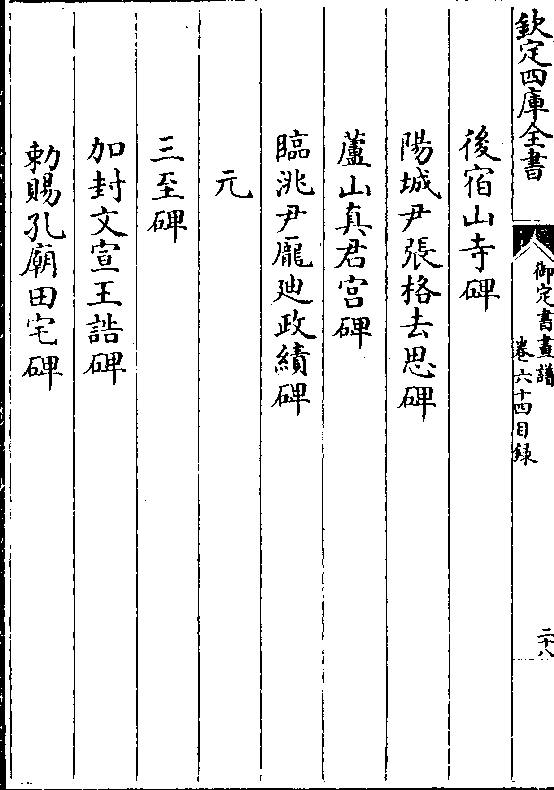 欽定四庫全書
御定書畫譜
卷六十四目録
二十八
後宿山寺碑
陽城尹張格去思碑
蘆山真君宮碑
臨洮尹龐迪政績碑
元
三至碑
加封文宣王誥碑
勅賜孔廟田宅碑